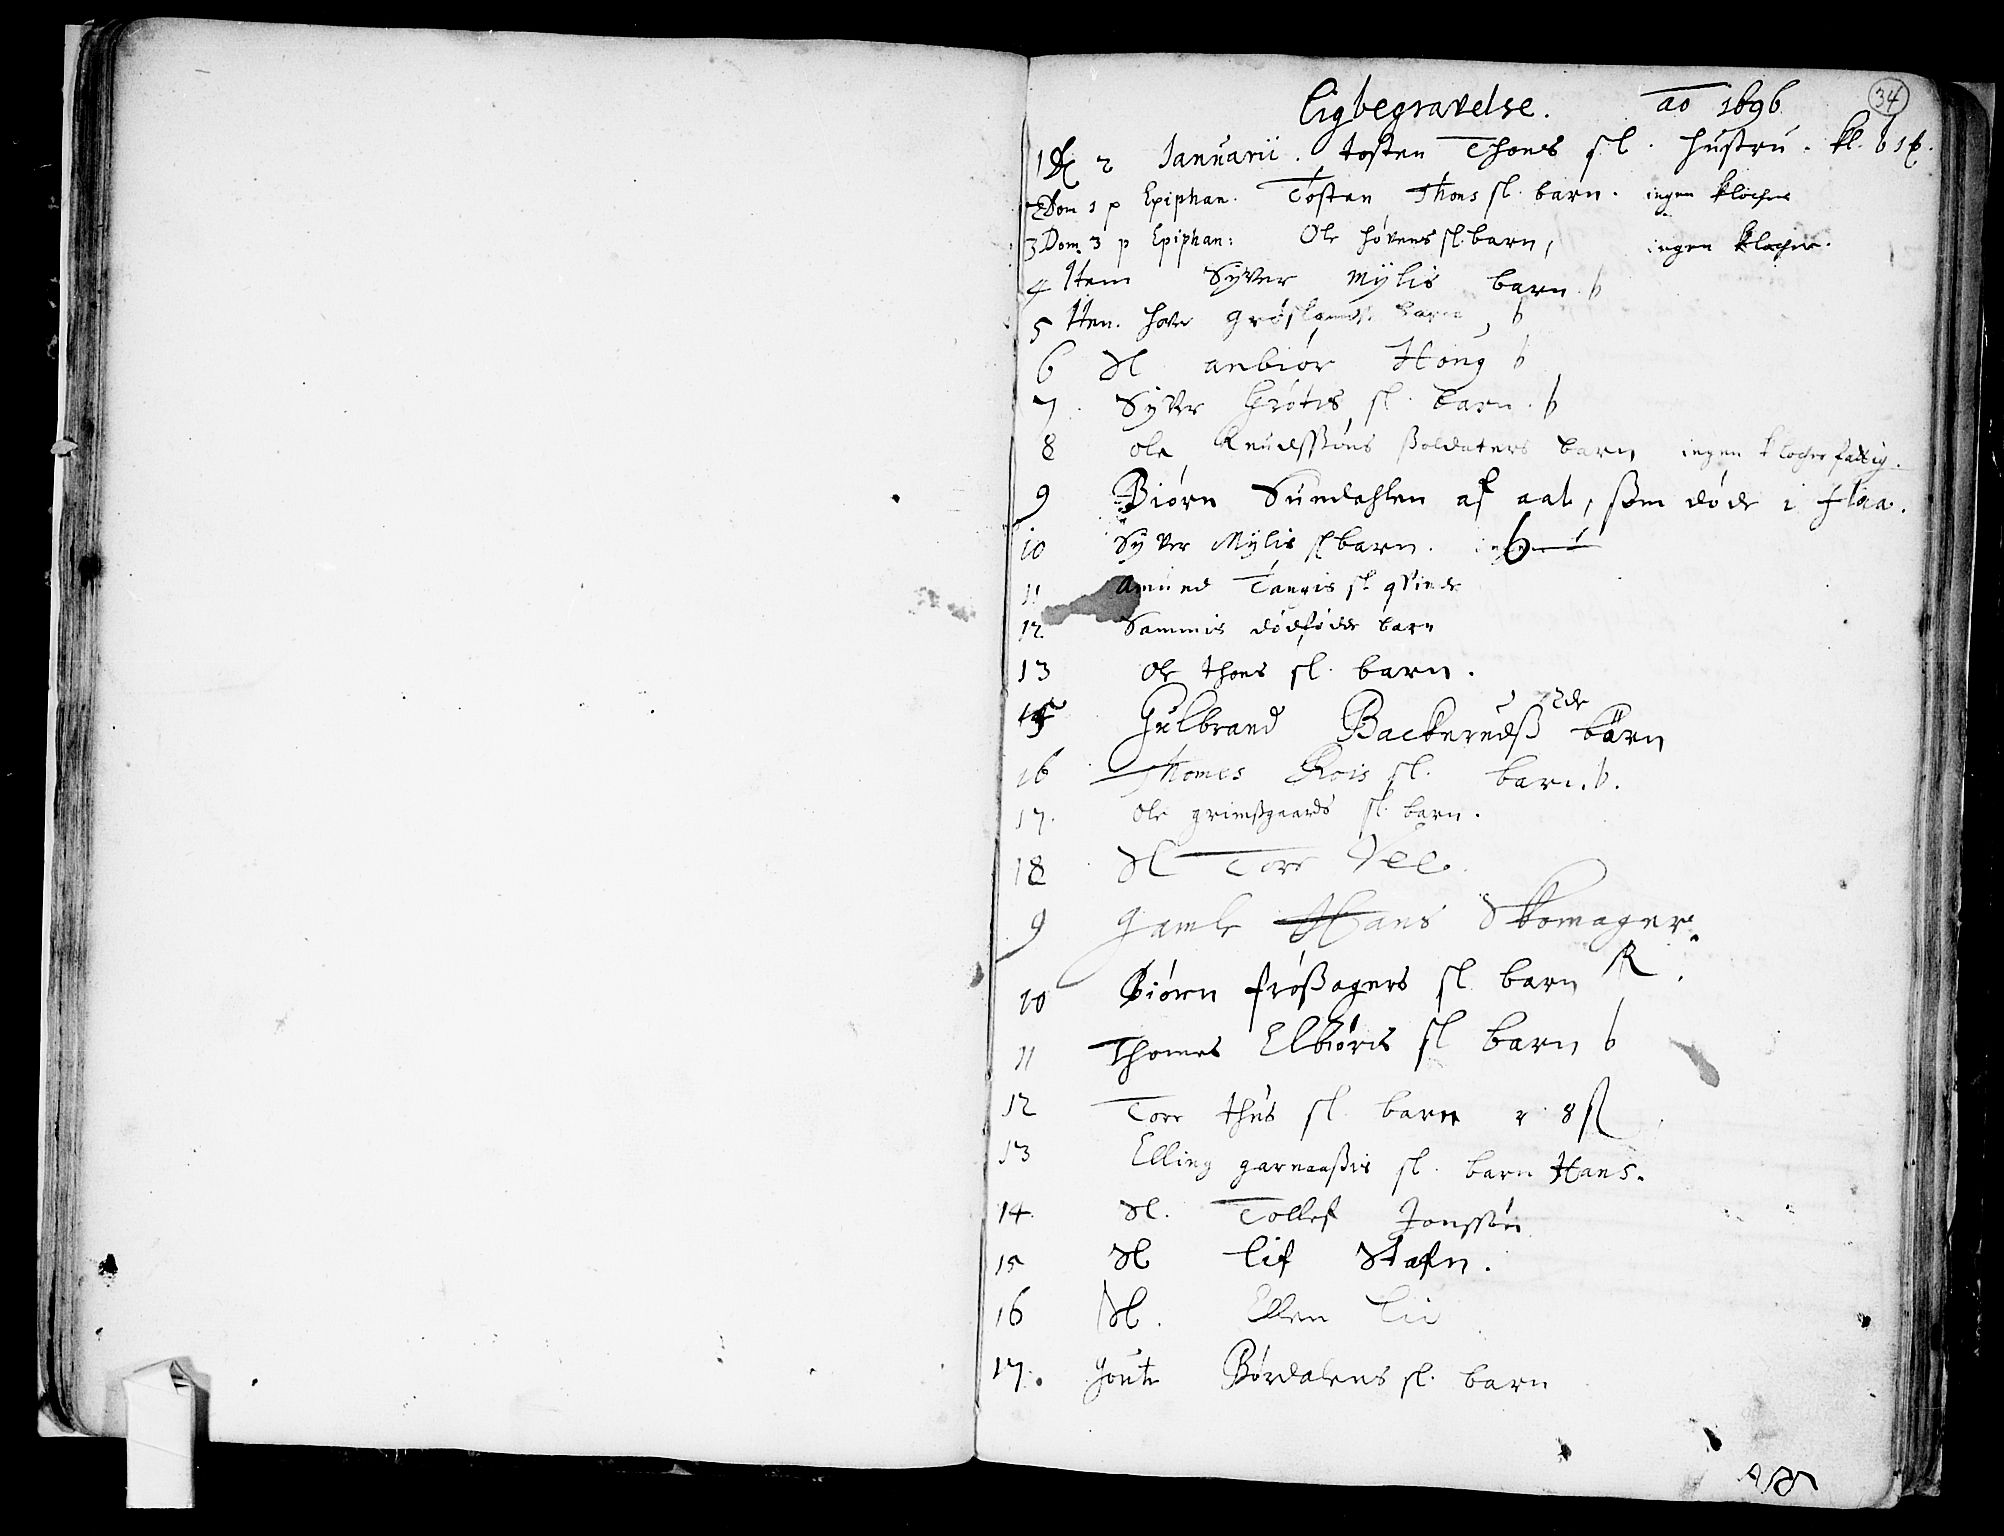 ligbegravelse. ao 1696 34
1 2 Ianuarii. tosten Thoes sl. hustru. kl. b
2 Dom 1 p Epiphan. Tosten Thoes sl. barn. ingen klocher
3 Dom 3 p Epiphan: Ole sl. barn, ingen klocher.
4 Item Syver Mylis barn. b
5 Item. barn, b
6 Sl anbiør Houg b
7. Syver Grøtis sl. barn. b
8 ole Knudssøns Soldaters barn ingen klocher fattig.
9 Biørn Sundahlen af aal, som døde i flaa.
10 Syver Mylis sl barn. b
11 Amund sl. qvinde
12 Sammis dødfødde barn
13 Ole thoes sl. barn.
Gulbrand Backerudß 2de börn
16 Thomes sl. barn. b.
17. Ole grimsgaards sl. barn.
18 Sl Tore
9 Gamle Hans Skomager.
10 Biørn frøßagers sl. barn
11 Thomes Elbiørs sl barn b
12 Tore thus sl. barn 8
13 Elling garnaaßis sl. barn Hans.
14. Sl. Tollef Jonssøn
15 Sl lif Stafn.
16 Sl. Ellen Lie
17. Goute Børdalens sl. barn